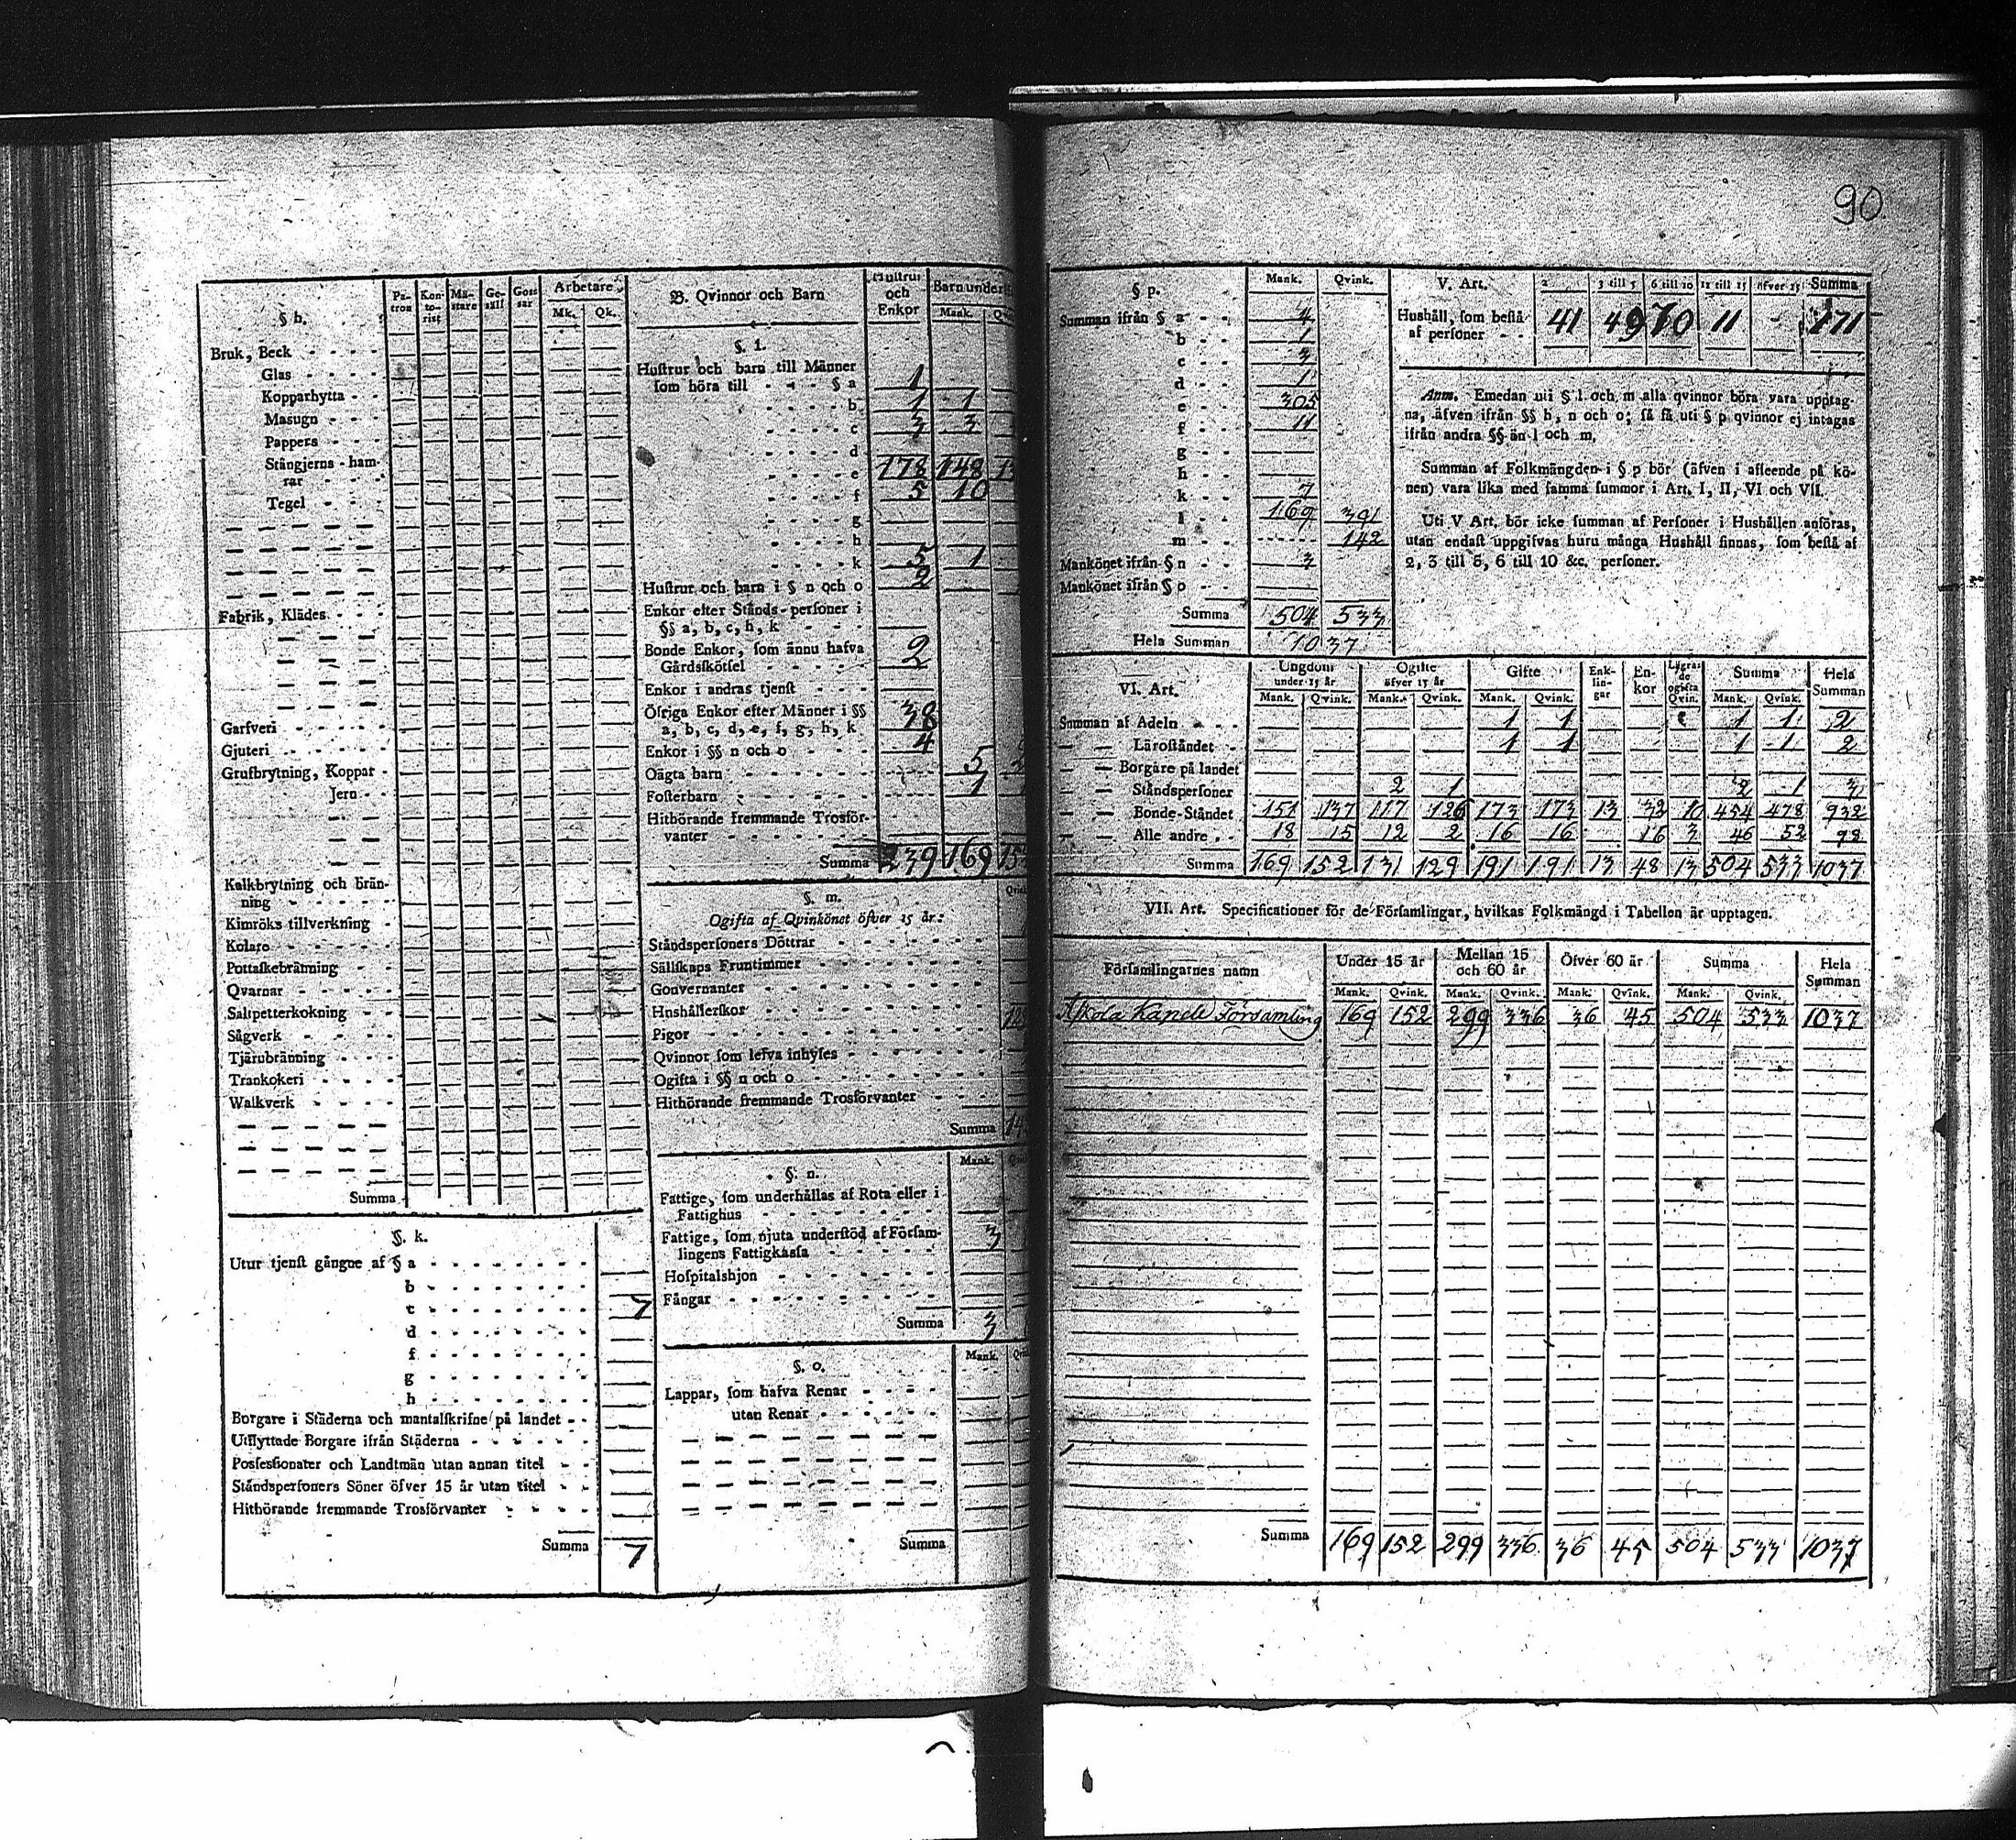 90
§ h.
Pa-tron Kon-to-rist Mä-stare Ge-säll Gossar Arbetare
Mk. Qk.
Bruk, Beck
Glas
Kopparhytta
Masugn
Pappers
Stångjerns-ham-
rar
Tegel
Fabrik, Klädes
Garfveri
Gjuteri
Grufbrytning, Koppar
Jern
Kalkbrytning och brän-
ning
Kimröks tillverkning
Kolare
Pottaskebränning
Qvarnar
Saltpetterkokning
Sågverk
Tjärubränning
Trankokeri
Walkverk
Summa
§. k.
Utur tjenst gångne af § a
b
c 7
d
f
g
h
Borgare i Städerna och mantalskrifne på landet
Utflyttade Borgare ifrån Städerna
Possessionater och Landtmän utan annan titel
Ståndspersoners Söner öfver 15 år utan titel
Hithörande fremmande Trosförvanter
Summa 7
B. Qvinnor och Barn
Hustrur och Enkor
Barn under
Mank.
§. l.
Hustrur och barn till Männer
som höra till § a 1
b 1 1
c 3 3
d
e 178 148
f 5 10
g
h
k 5 1
Hustrur och barn i § n och o 2
Enkor efter Stånds-personer i
§§ a, b, c, h, k
Bonde Enkor, som ännu hafva
Gårdsskötsel 2
Enkor i andras tjenst
Öfriga Enkor efter Männer i §§
a, b, c, d, e, f, g, h, k 38
Enkor i §§ n och o 4
Oägta barn 5
Fosterbarn 1
Hithörande fremmande Trosför-
vanter
Summa 239 169
§. m.
Ogifta af Qvinkönet öfver 15 år:
Ståndspersoners Döttrar
Sällskaps Fruntimmer
Gouvernanter
Hushållerskor
Pigor
Qvinnor som lefva inhyses
Ogifta i §§ n och o
Hithörande fremmande Trosförvanter
Summa
§. n.
Mank.
Fattige, som underhållas af Rota eller i
Fattighus
Fattige, som njuta understöd af Försam-
lingens Fattigkassa 3
Hospitalshjon
Fångar
Summa 3
§. o.
Mank.
Lappar, som hafva Renar
utan Renar
Summa
§ p.
Mank. Qvink.
Summan ifrån § a 4
b 1
c 3
d 1
e 305
f 11
g
h
k 7
l 169 391
m 142
Mankönet ifrån § n 3
Mankönet ifrån § o
Summa 504 533
Hela Summan 1037
V. Art.
2 3 till 5 6 till 10 11 till 15 öfver 15 Summa
Hushåll, som bestå
af personer 41 49 70 11 - 171
Anm. Emedan uti § l och m alla qvinnor böra vara upptag-
na, äfven ifrån §§ h, n och o; så få uti § p qvinnor ej intagas
ifrån andra §§ än l och m.
Summan af Folkmängden i § p bör (äfven i afseende på kö-
nen) vara lika med samma summor i Art. I, II, VI och VII.
Uti V Art. bör icke summan af Personer i Hushållen anföras,
utan endast uppgifvas huru många Hushåll finnas, som bestå af
2, 3 till 5, 6 till 10 &c. personer.
VI. Art.
Ungdom under 15 år Ogifte öfver 15 år Gifte Enk-lin-gar En-kor Lägrade ogifta Qvin. Summa Hela Summan
Mank. Qvink. Mank. Qvink. Mank. Qvink. Mank. Qvink.
Summan af Adeln 1 1 1 1 2
Läroståndet 1 1 1 1 2
Borgare på landet
Ståndspersoner 2 1 2 1 3
Bonde-Ståndet 151 137 117 126 173 173 13 32 10 454 478 932
Alle andre 18 15 12 2 16 16 16 3 46 52 98
Summa 169 152 131 129 191 191 13 48 13 504 533 1037
VII. Art. Specificationer för de Församlingar, hvilkas Folkmängd i Tabellen är upptagen.
Församlingarnes namn
Under 15 år Mellan 15 och 60 år Öfver 60 år Summa Hela Summan
Mank. Qvink. Mank. Qvink. Mank. Qvink. Mank. Qvink.
Kapell Församling 169 152 299 336 36 45 504 533 1037
Summa 169 152 299 336 36 45 504 533 1037